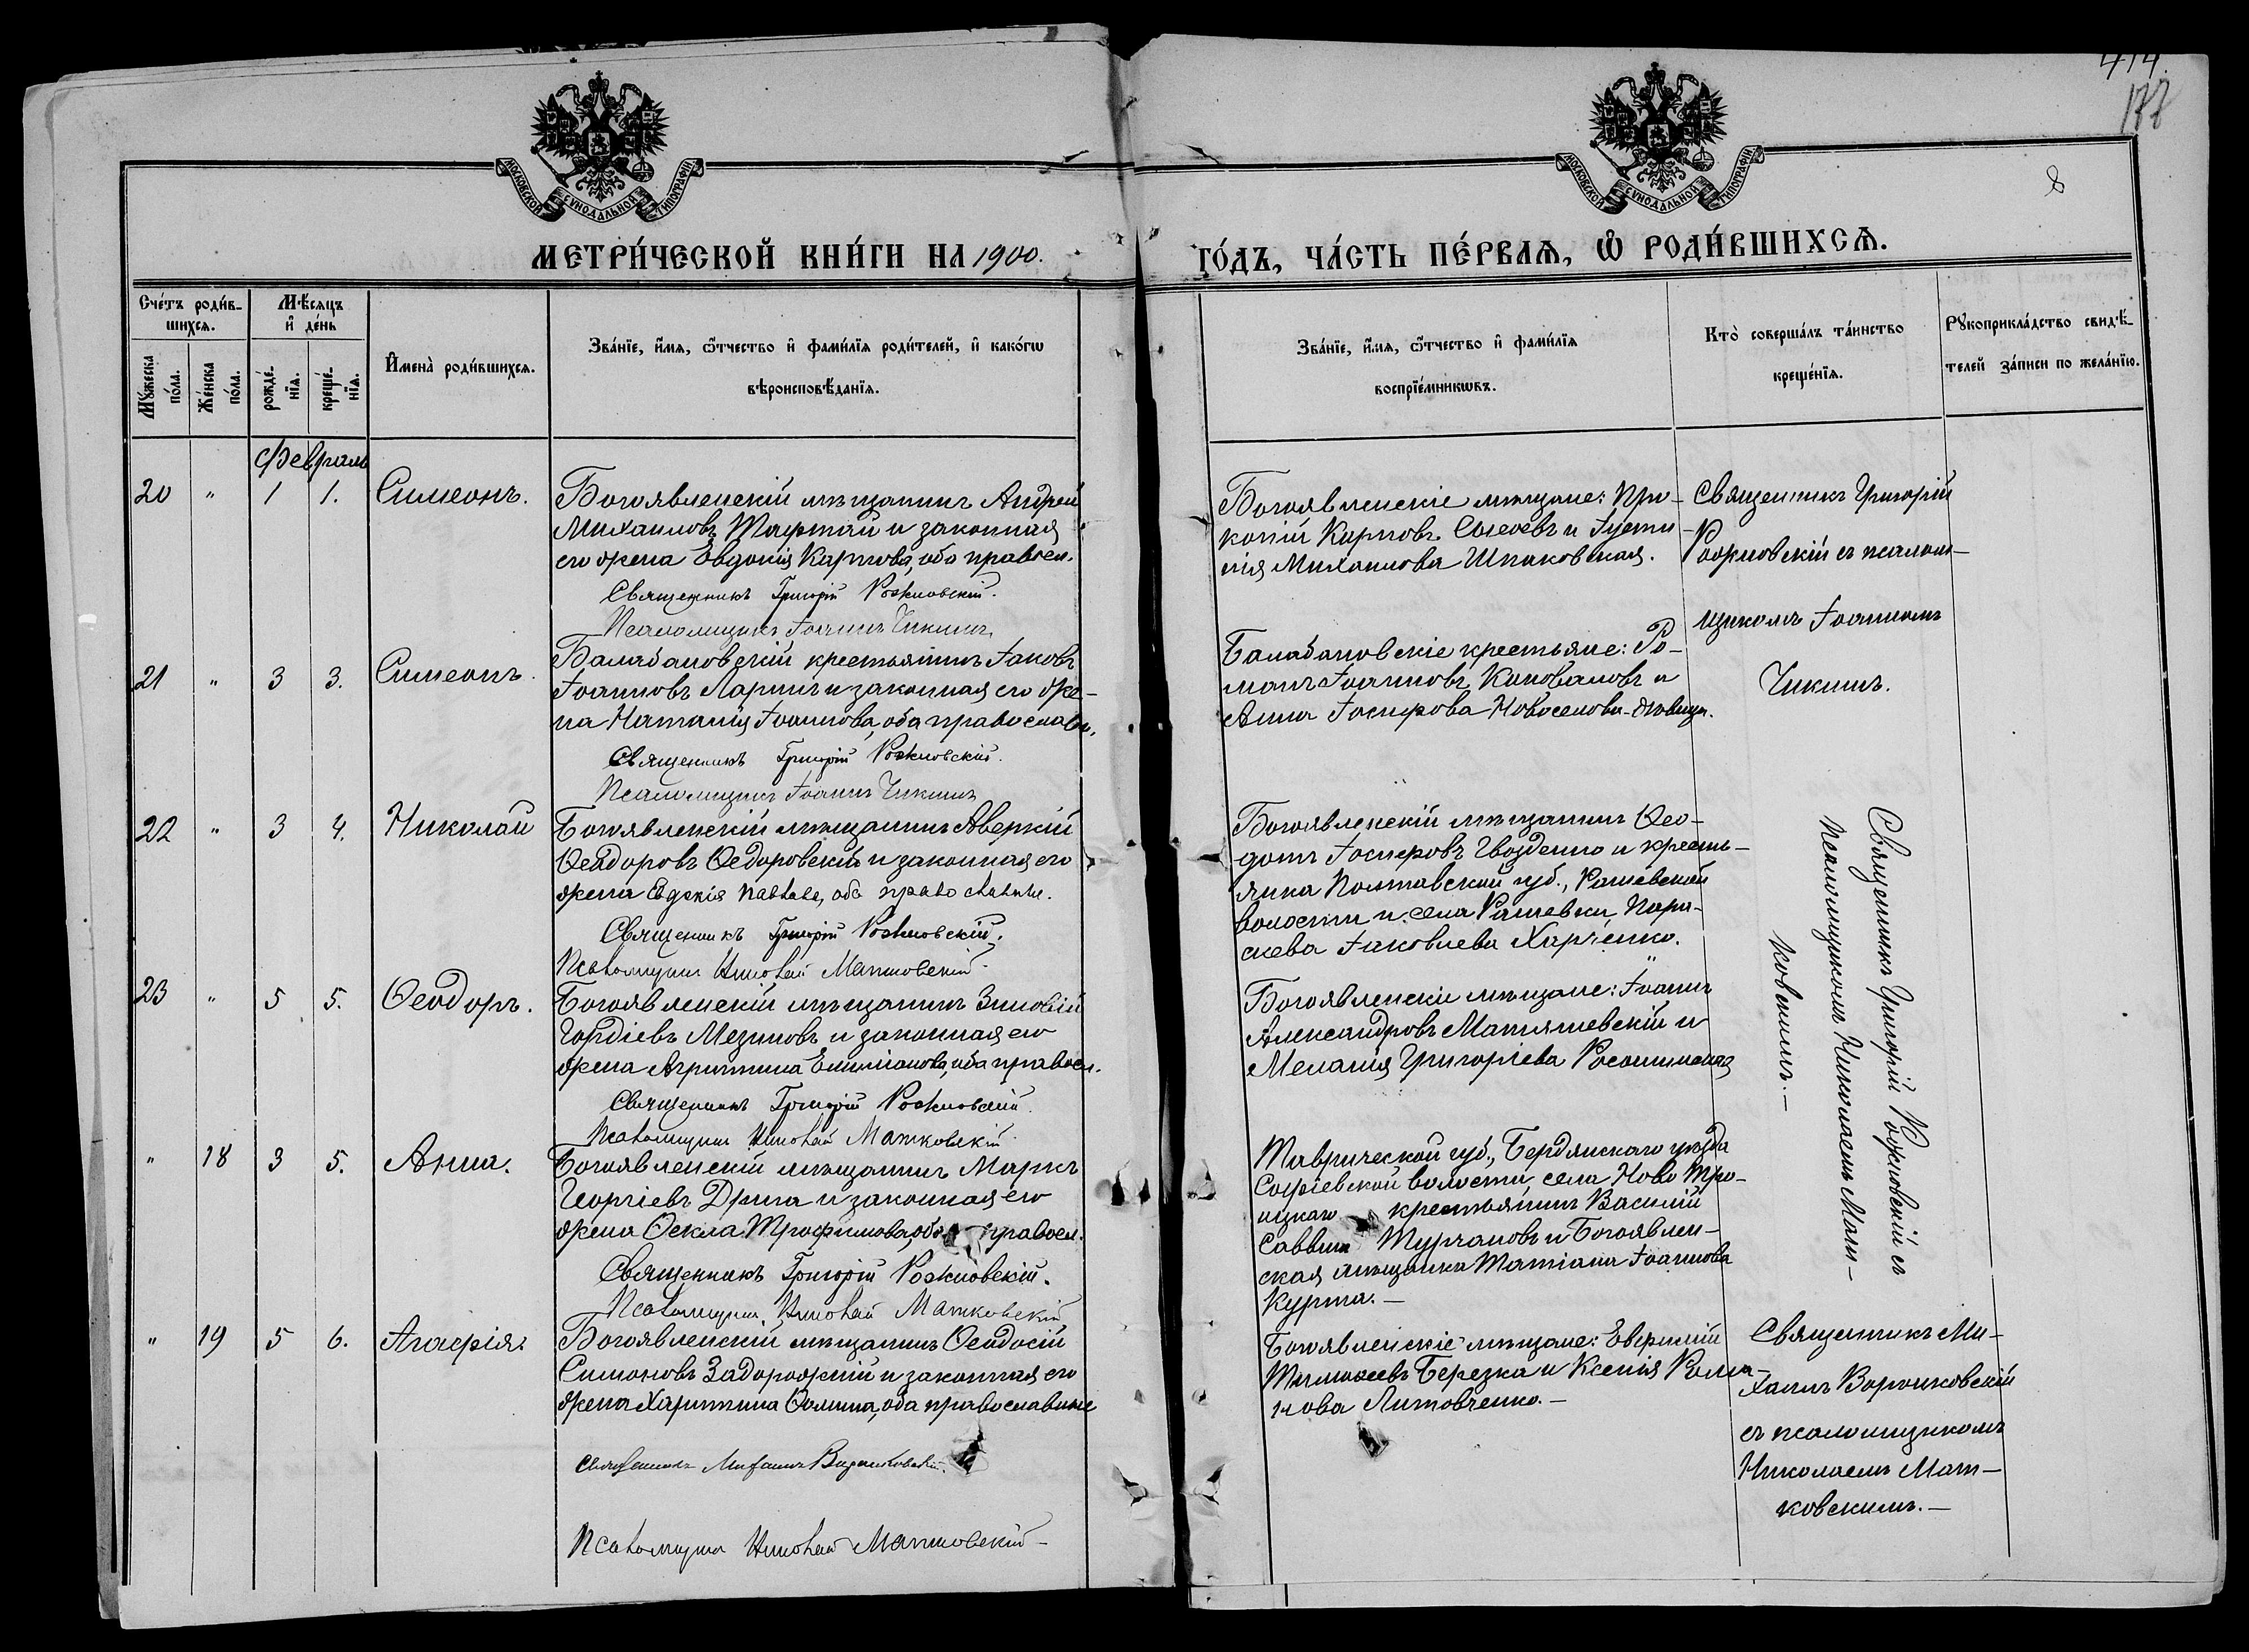 414.
177
8
МОСКОВСКОЙ СУНОДАЛЬНОЙ ТИПОГРАФІИ
МОСКОВСКОЙ СУНОДАЛЬНОЙ ТИПОГРАФІИ
МЕТРИ́ЧЕСКОЙ КНИ́ГИ НА 1900. ГО́ДЪ, ЧА́СТЬ ПЕ́РВАѦ, Ѡ҆ РОДИ́ВШИХСѦ.
Сче́тъ роди́в-
шихсѧ.
Мѣ́сѧцъ
и҆ де́нь
Мꙋ́жеска
по́ла.
Же́нска
по́ла.
рожде́-
нїѧ.
креще́-
нїѧ.
И҆мена̀ роди́вшихсѧ.
Зва́нїе, и҆́мѧ, ѻ҆́тчество и҆ фами́лїѧ роди́телей, и҆ како́гѡ
вѣроисповѣ́данїѧ.
Зва́нїе, и҆́мѧ, ѻ҆́тчество и҆ фами́лїѧ
воспрїе́мникѡвъ.
Кто̀ соверша́лъ та́инство
креще́нїѧ.
Рꙋкоприкла́дство свидѣ́-
телей за́писи по жела́нїю.
Февраль
20 " 1 1. Симеонъ.
Богоявленскій мѣщанинъ Андрей
Михаиловъ и законная
его жена Евдокія Карпова, оба правосл.
Священникъ Григорій Рожновскій.
Псаломщикъ Іоаннъ Чикинъ
Богоявленскіе мѣщане: Про-
копій Карповъ и Іусти-
нія Михаилова Шпаковская.
Священникъ Григорій
Рожновскій съ псалом-
щикомъ Іоанномъ
Чикинъ.
21 " 3 3. Симеонъ.
Балабановскій крестьянинъ Іаковъ
Іоанновъ Ларинъ и законная его же-
на Наталія Іоаннова, оба православн.
Священникъ Григорій Рожновскій.
Псаломщикъ Іоаннъ Чикинъ
Балабановскіе крестьяне: Ро-
манъ Іоанновъ Коноваловъ и
Анна Іосифова Новоселова-дѣвица.
22 " 3 4. Николай
Богоявленскій мѣщанинъ Аверкій
Ѳеодоровъ Ѳедоровскій и законная его
жена Евдокія Павлова, оба православные.
Священникъ Григорій Рожновскій.
Псаломщикъ Николай Матковскій
Богоявленскій мѣщанинъ Ѳео-
дотъ Іосифовъ Гвозденко и кресть-
янка Полтавской губ., Рашевской
волости и села Рашевки, Пара-
скева Іаковлева Харченко.
Священникъ Григорій Рожновскій съ
псаломщикомъ Николаемъ Мат-
ковскимъ.-
23 " 5 5. Ѳеодоръ.
Богоявленскій мѣщанинъ Зиновій
Гордіевъ Мезиновъ и законная его
жена Агрипина Емиліанова, оба правосл.
Священникъ Григорій Рожновскій.
Псаломщикъ Николай Матковскій
Богоявленскіе мѣщане: Іоаннъ
Александровъ Матяшевскій и
Меланія Григоріева
" 18 3 5. Анна.
Богоявленскій мѣщанинъ Маркъ
Георгіевъ Дрига и законная его
жена Ѳекла Трофимова, оба правосл.
Священникъ Григорій Рожновскій.
Псаломщикъ Николай Матковскій
Таврической губ., Бердянскаго уѣзда
Софіевской волости, села Ново Тро-
ицкаго крестьянинъ Василій
Саввинъ Турчановъ и Богоявлен-
ская мѣщанка Татіана Іоаннова
Курта.-
" 19 5 6. Агафія.
Богоявленскій мѣщанинъ Ѳеодосій
Симоновъ Задорожній и законная его
жена Харитина Ѳомина, оба православные
Священникъ Михаилъ
Псаломщикъ Николай Матковскій-
Богоявленскіе мѣщане: Евфимій
Тимоѳеевъ Березка и Ксенія Рома-
нова Литовченко.-
Священникъ Ми-
хаилъ
съ псаломщикомъ
Николаемъ Мат-
ковскимъ.-